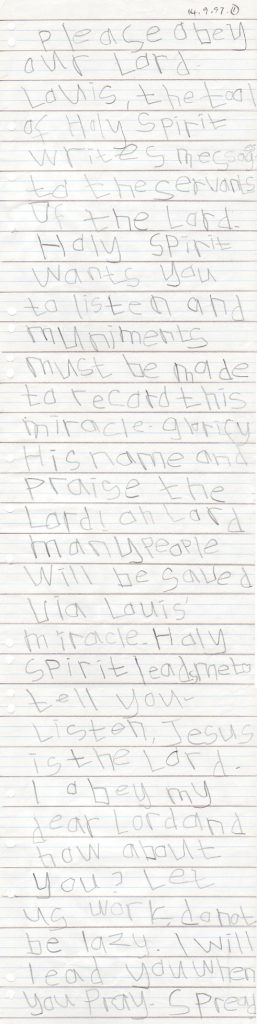 14.9.97. ①
Please obey
our Lord.
Louis, the tool
of Holy Spirit
writes message
to the servants
of the Lord.
Holy Spirit
wants you
to listen and
muniments
must be made
to record this
miracle. gloricy
His name and
praise the
Lord! oh Lord
many people
will be saved
via Louis'
miracle. Holy
Spirit leads me to
tell you-
Listen, Jesus
is the Lord.
I obey my
dear Lord and
how about
you? Let
us work, do not
be lazy. I will
lead you when
you pray. Spread